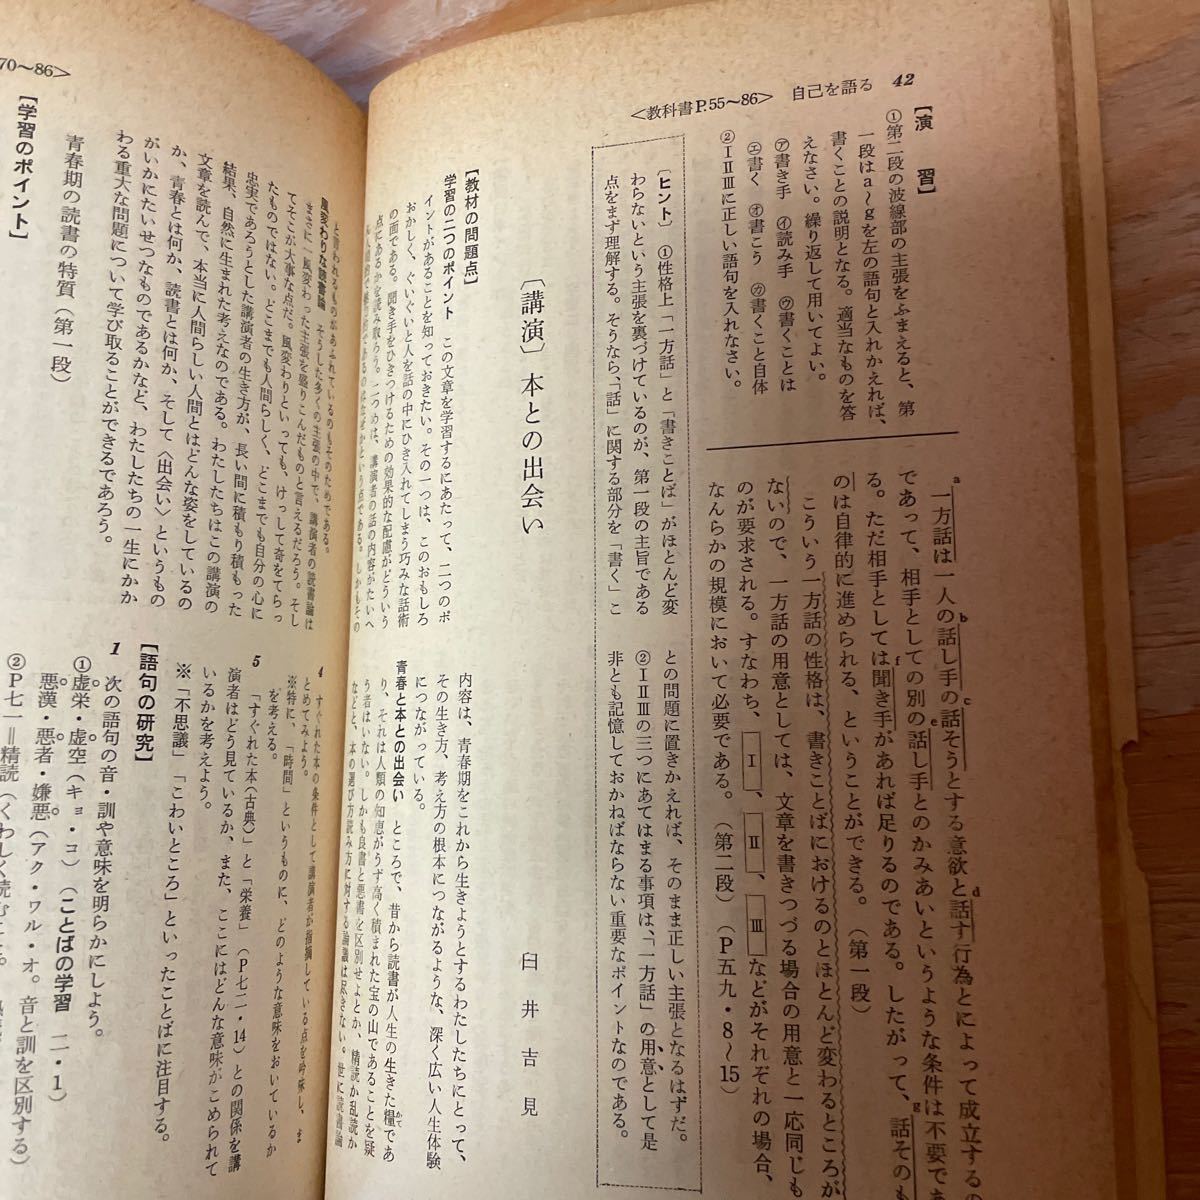 <教科書P.55〜86> 自己を語る 42
【演 習】
①第二段の波線部の主張をふまえると、第
一段はa〜gを左の語句と入れかえれば、
書くことの説明となる。適当なものを答
えなさい。繰り返して用いてよい。
㋐書き手 ㋑読み手 ㋒書くことは
㋓書く ㋔書こう ㋕書くこと自体
②ⅠⅡⅢに正しい語句を入れなさい。
a一方話は一人のb話し手のc話そうとする意欲とd話す行為とによって成立するの
であって、相手としての別のe話し手とのかみあいというような条件は不要であ
る。ただ相手としてはf聞き手があれば足りるのである。したがって、g話そのも
のは自律的に進められる、ということができる。(第一段)
こういう一方話の性格は、書きことばにおけるのとほとんど変わるところが
ないので、一方話の用意としては、文章を書きつづる場合の用意と一応同じも
のが要求される。すなわち、Ⅰ、Ⅱ、Ⅲなどがそれぞれの場合、
なんらかの規模において必要である。(第二段) (P五九・8〜15)
〔ヒント〕 ①性格上「一方話」と「書きことば」がほとんど変
わらないという主張を裏づけているのが、第一段の主旨である
点をまず理解する。そうなら、「話」に関する部分を「書く」こ
との問題に置きかえれば、そのまま正しい主張となるはずだ。
②ⅠⅡⅢの三つにあてはまる事項は、「一方話」の用意として是
非とも記憶しておかねばならない重要なポイントなのである。
〔講演〕本との出会い
臼井吉見
【教材の問題点】
学習の二つのポイント この文章を学習するにあたって、二つのポ
イントがあることを知っておきたい。その一つは、このおもしろ
おかしく、ぐいぐいと人を話の中にひき入れてしまう巧みな話術
の面である。聞き手をひきつけるための効果的な配慮がどういう
点にあるかを読み取ろう。二つめは、講演者の話の内容がたいへ
内容は、青春期をこれから生きようとするわたしたちにとって、
その生き方、考え方の根本につながるような、深く広い人生体験
につながっている。
青春と本との出会い ところで、昔から読書が人生の生きた糧かてであ
り、それは人類の知恵がうず高く積まれた宝の山であることを疑
う者はいない。しかも良書と悪書を区別せよとか、精読か乱読か
などと、本の選び方読み方に対する論議は尽きない。世に読書論
70〜86>
と言われるものがあふれているのもそのためである。
風変わりな読書論 そうした多くの主張の中で、講演者の読書論は
まさに「風変わった主張を盛りこんだもの」と言えるだろう。そし
てそこが大事な点だ。風変わりといっても、けっして奇をてらっ
たものではない。どこまでも人間らしく、どこまでも自分の心に
忠実であろうとした講演者の生き方が、長い間に積もり積もった
結果、自然に生まれた考えなのである。わたしたちはこの講演の
文章を読んで、本当に人間らしい人間とはどんな姿をしているの
か、青春とは何か、読書とは何か、そして〈出会い〉というもの
がいかにたいせつなものであるかなど、わたしたちの一生にかか
わる重大な問題について学び取ることができるであろう。
【学習のポイント】
青春期の読書の特質(第一段)
4 すぐれた本の条件として講演者が指摘している点を吟味し、ま
とめてみよう。
※特に、「時間」というものに、どのような意味をおいているか
を考える。
5 「すぐれた本(古典)」と「栄養」(P七二・14)との関係を講
演者はどう見ているか、また、ここにはどんな意味がこめられて
いるかを考えよう。
※「不思議」「こわいところ」といったことばに注目する。
【語句の研究】
1 次の語句の音・訓や意味を明らかにしよう。
①虚栄・虚空(キョ・コ)(ことばの学習 二・1)
悪漢・悪者・嫌悪(アク・ワル・オ。音と訓を区別する)
②P七一=精読(くわしく読むこと。